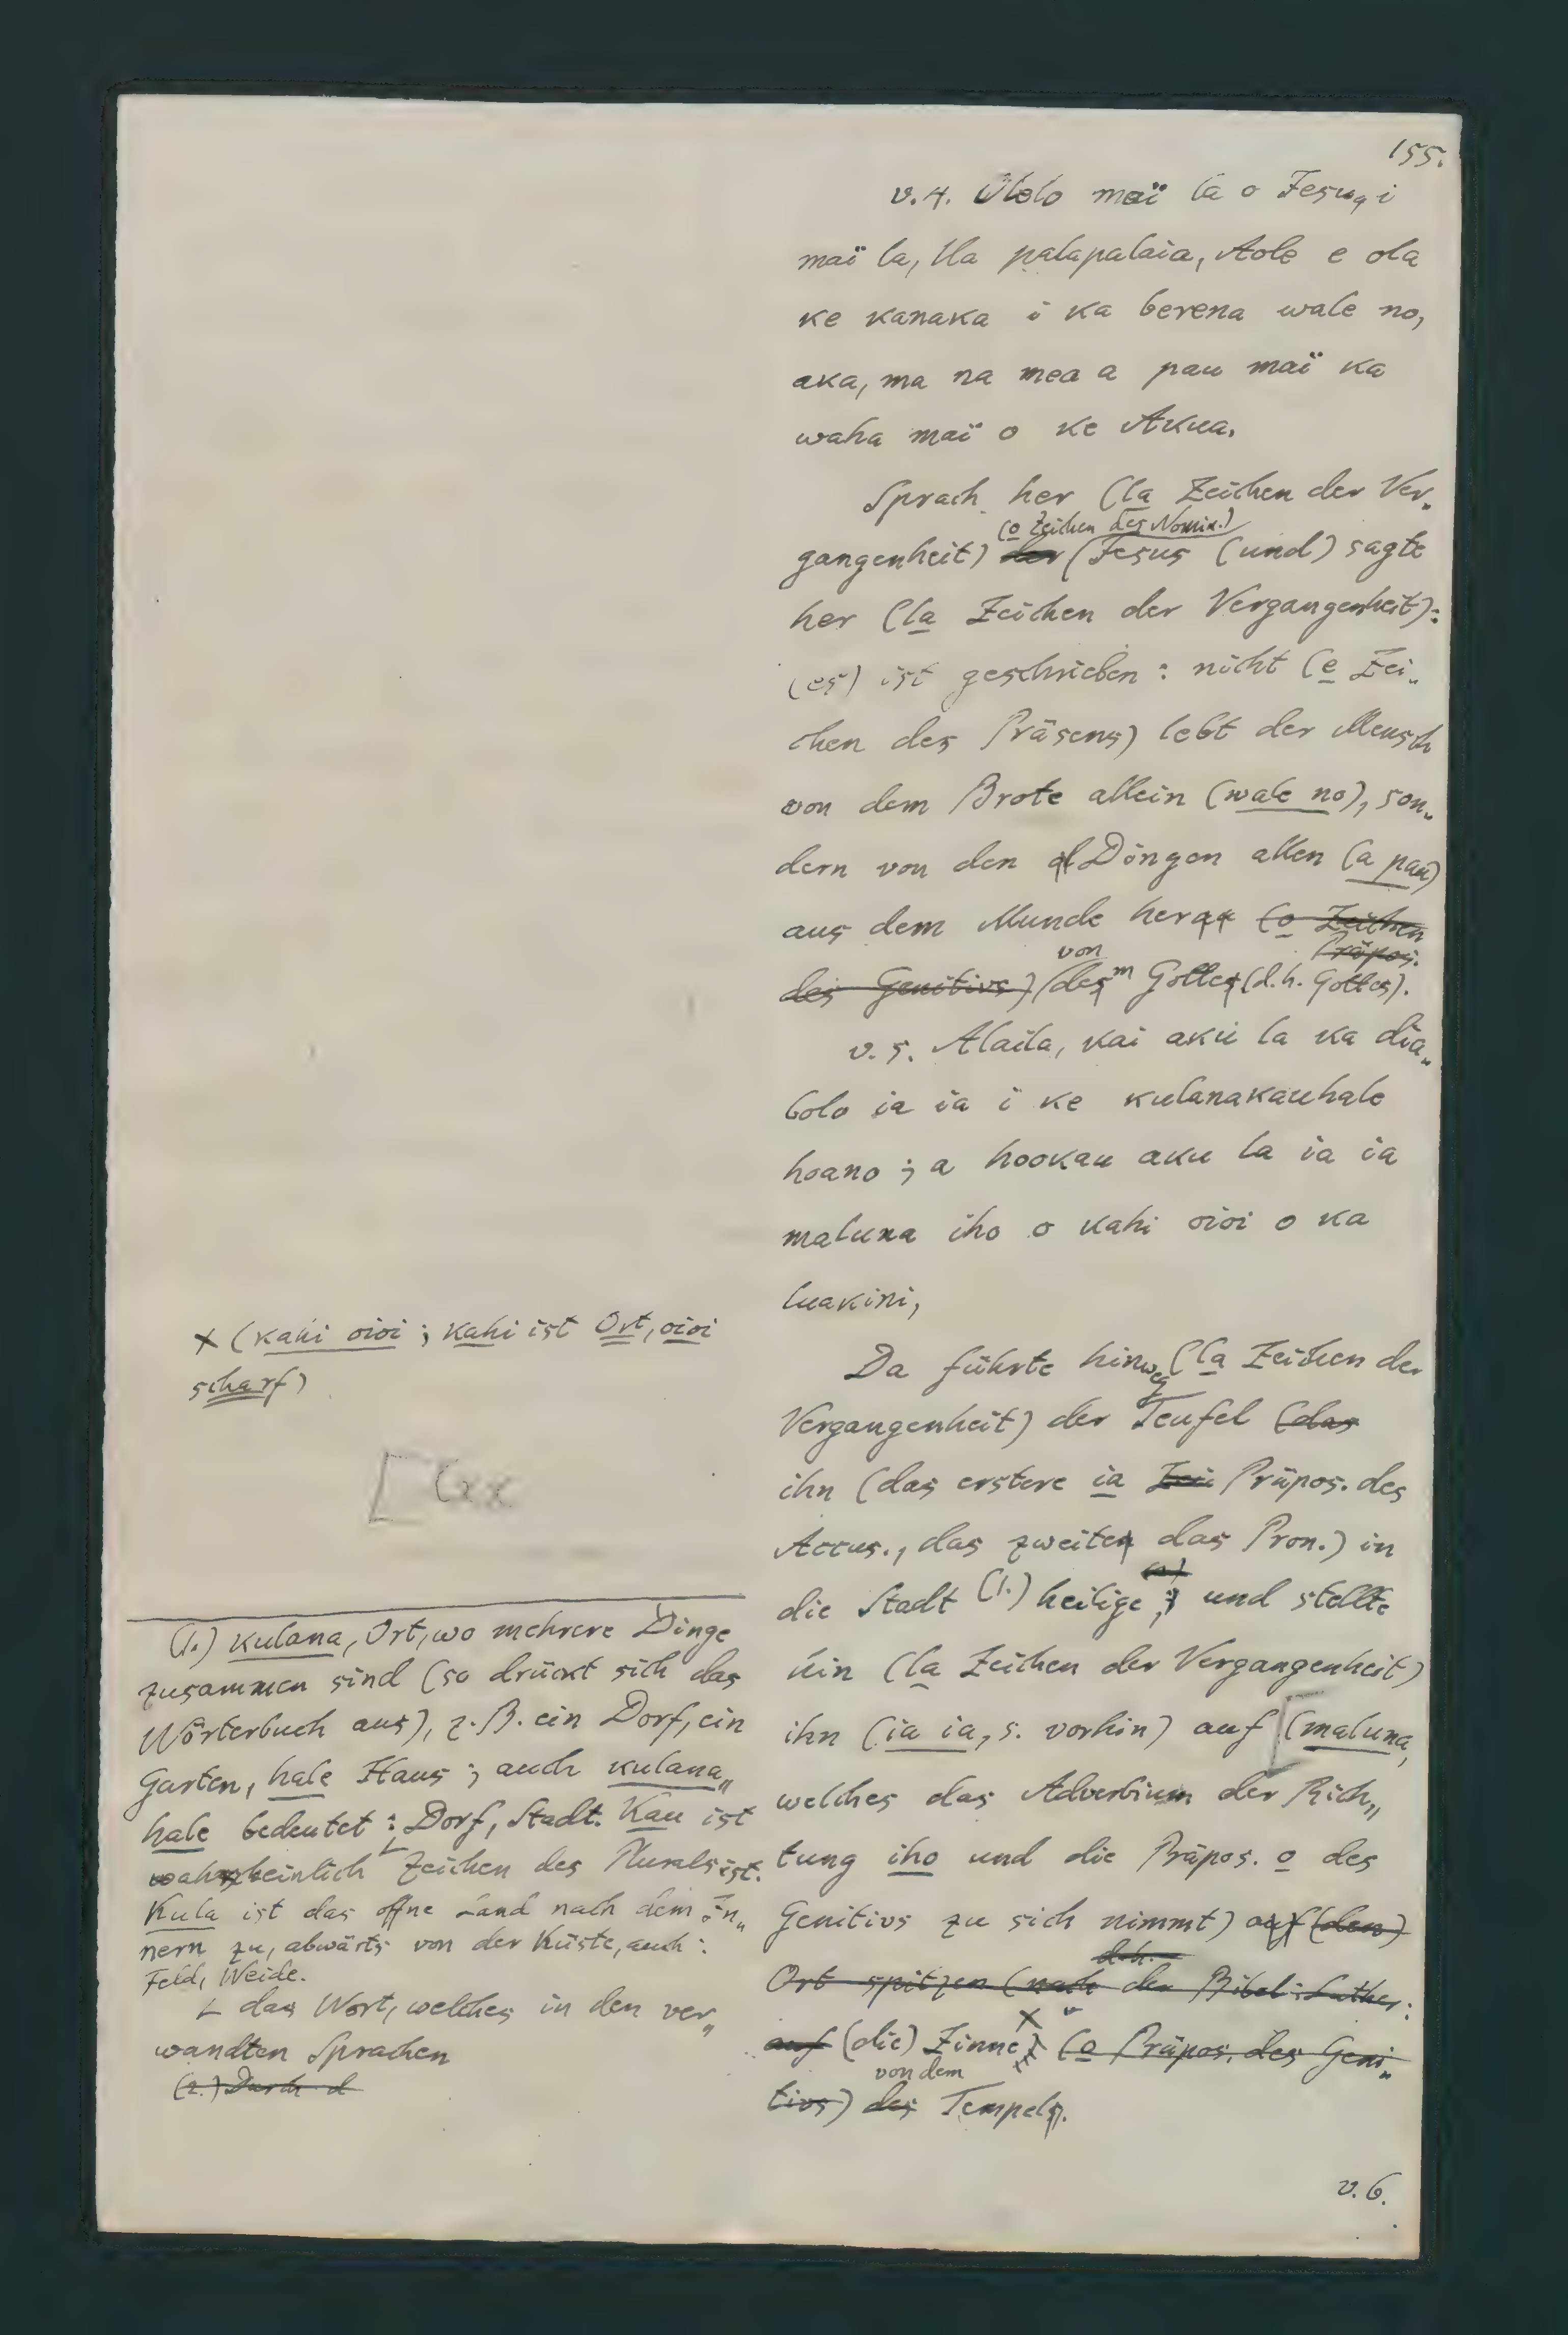 155.
v. 4. Olelo maï la o Jesu, i
maï la, Ua palapalaia, Aole e ola
ke kanaka i ka berena wale no,
aka, ma na mea a pau maï ka
waha maï o ke Akua.
Sprach her (la Zeichen der Ver„
(o Zeichen des Nomin.)
gangenheit) der Jesus (und) sagte
her (la Zeichen der Vergangenheit):
(es) ist geschrieben: nicht (e Zei„
chen des Präsens) lebt der Mensch
von dem Brote allein (wale no), son„
dern von den Dingen allen (a pau)
aus dem Munde her (o Zeichen
Präpos.
von
des Genitivs) dem Gotte (d. h. Gottes).
v. 5. Alaila, kai aku la ka dia„
bolo ia ia i ke kulanakauhale
hoano; a hookau aku la ia ia
maluna iho o kahi oioi o ka
luakini,
Da führte hinweg (la Zeichen der
Vergangenheit) der Teufel (das
ihn (das erstere ia Zei Präpos. des
Accus., das zweite das Pron.) in
(2.)
die Stadt (1.) heilige, und stellte
hin (la Zeichen der Vergangenheit)
ihn (ia ia, s. vorhin) auf [(maluna,
welches das Adverbium der Rich„
tung iho und die Präpos. o des
Genitivs zu sich nimmt) auf (den)
d. h.
Ort spitzen (nach der Bibel: Luther:
auf (die) Zinne × (o Präpos. des Geni„
von dem
tivs) des Tempel.
v. 6.
× (kahi oioi; kahi ist Ort, oioi
scharf)
(1.) kulana, Ort, wo mehrere Dinge
zusammen sind (so drückt sich das
Wörterbuch aus), z. B. ein Dorf, ein
Garten, hale Haus; auch kulana„
hale bedeutet: Dorf, Stadt. Kau ist
wahrscheinlich Zeichen des Plurals ist.
Kula ist das offne Land nach dem In„
nern zu, abwärts von der Küste, auch:
Feld, Weide.
∟ das Wort, welches in den ver„
wandten Sprachen
(2.) Durch d